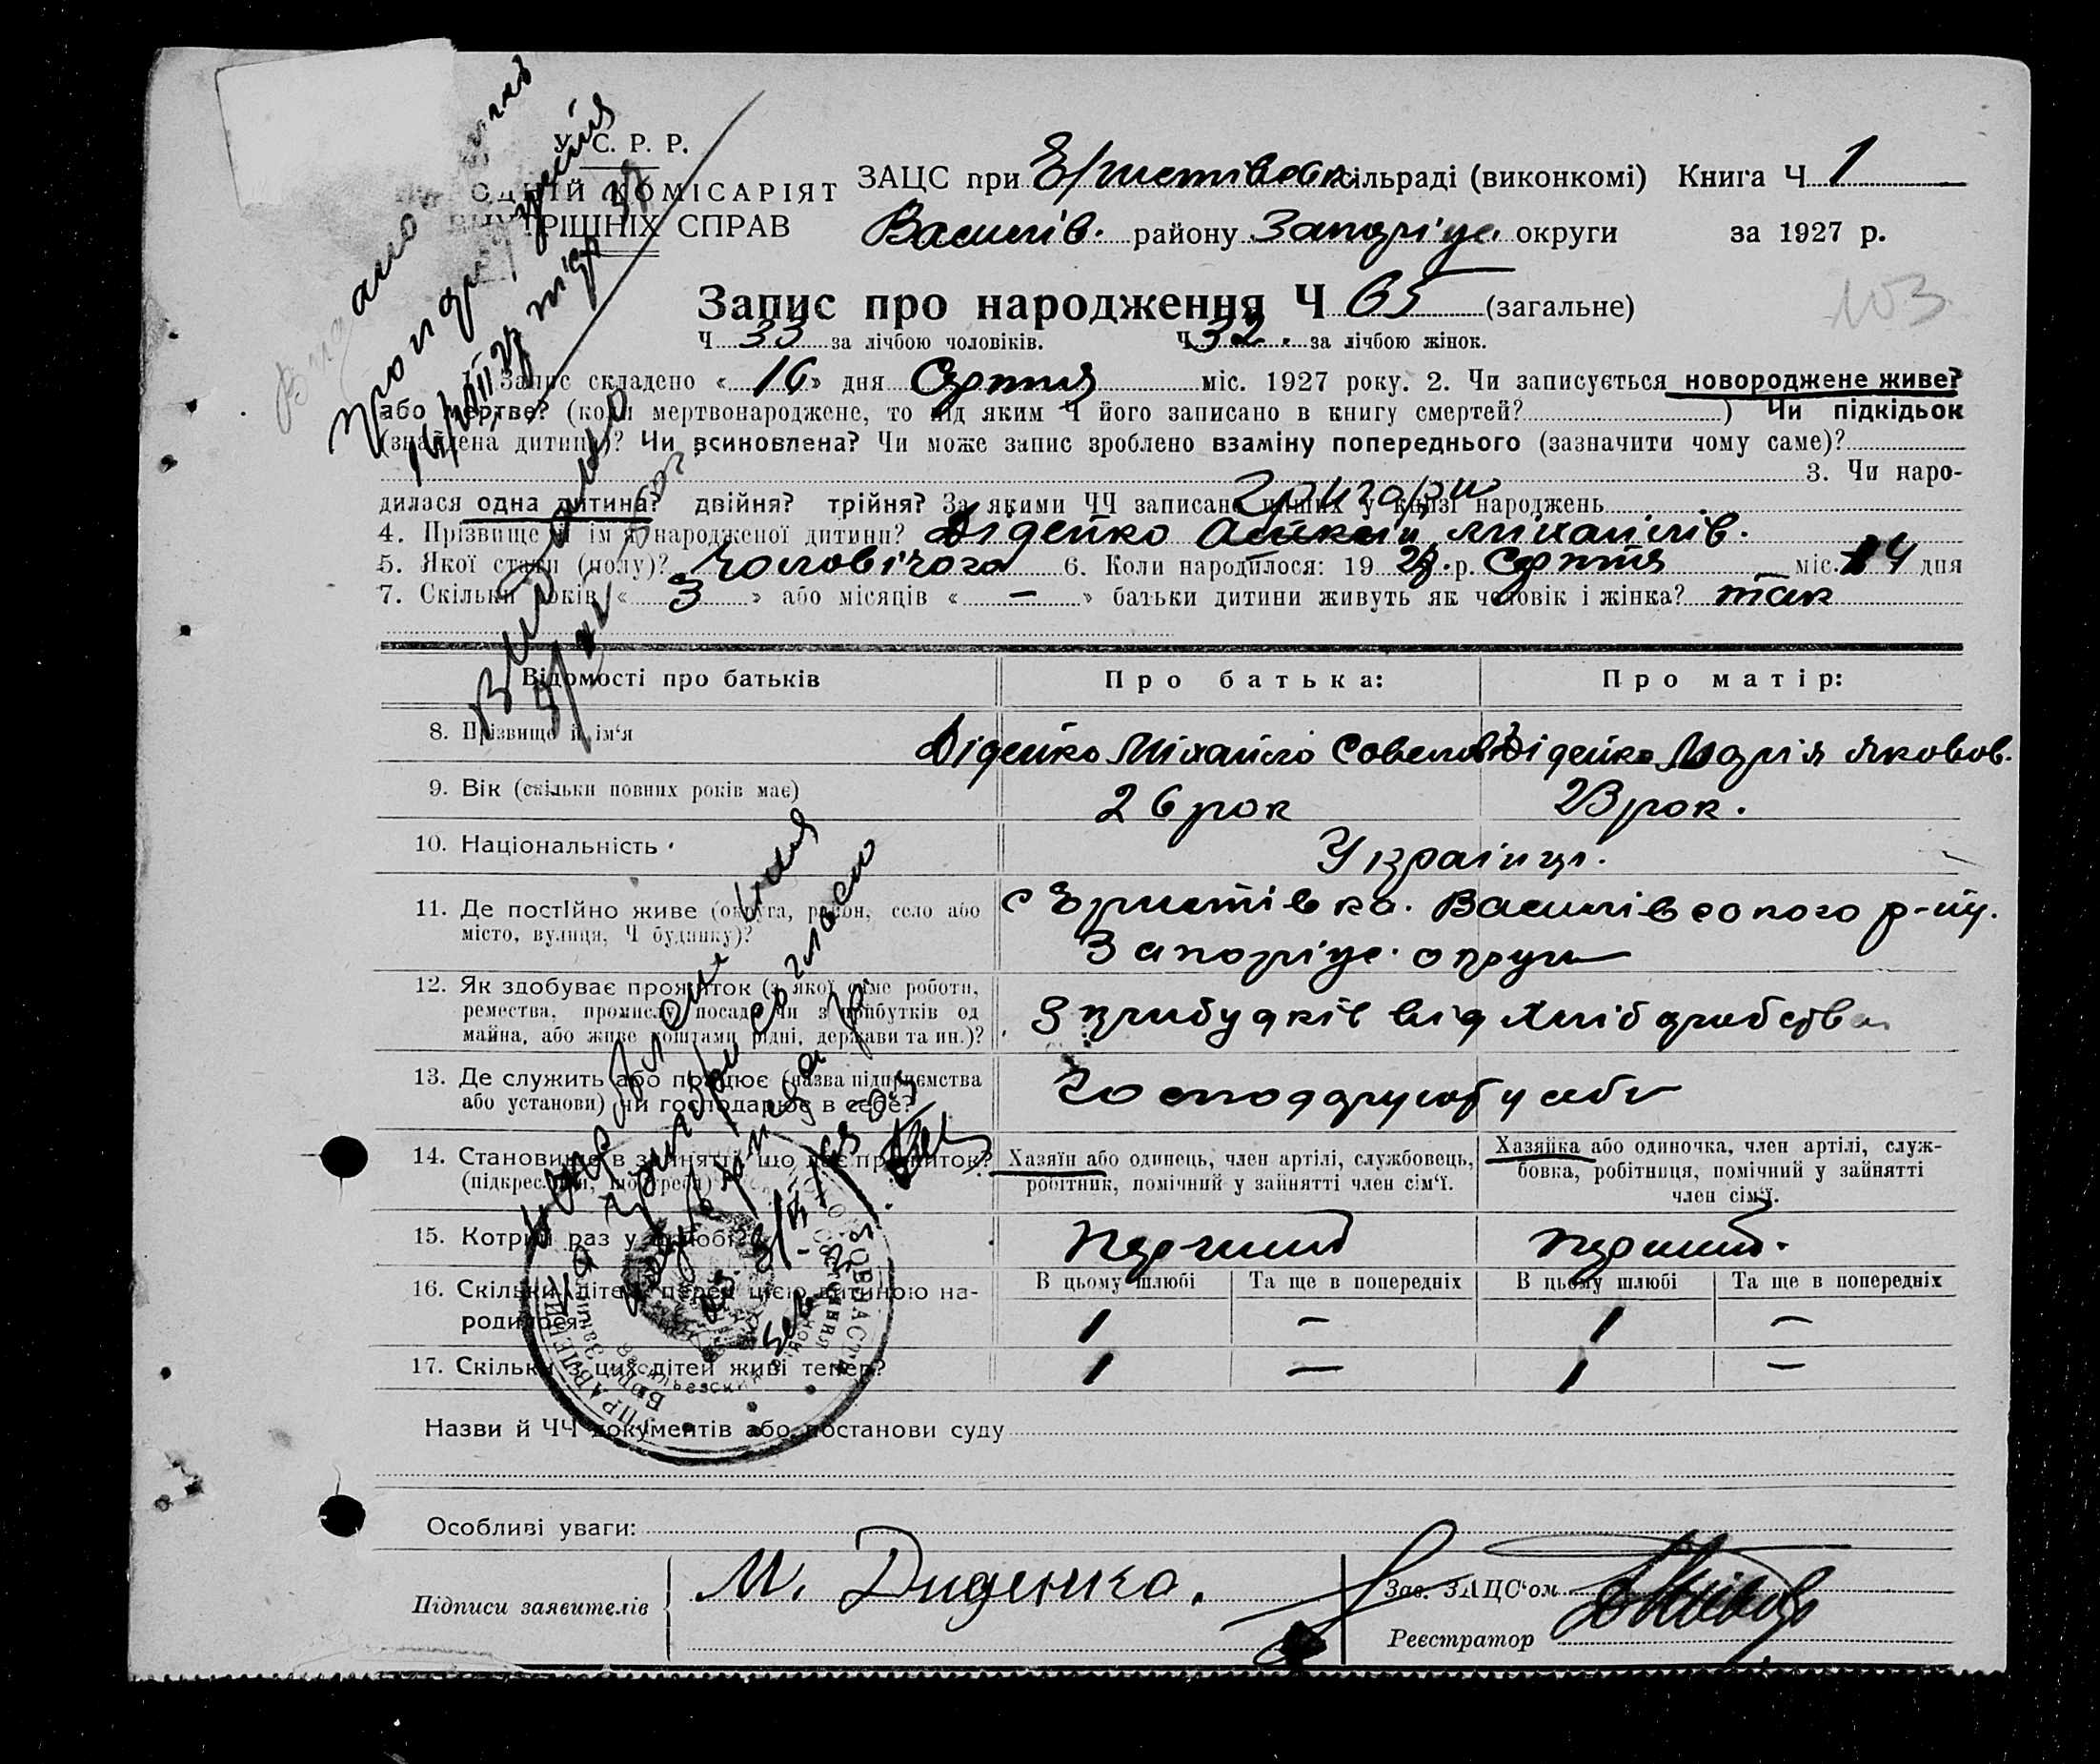 У. С. Р. Р.
КОМІСАРІЯТ
СПРАВ
ЗАЦС при Еристівськ. сільраді (виконкомі) Книга Ч 1
Василів. району Запоріць. округи за 1927 р.
Запис про народження Ч 65 (загальне)
Ч 33 за лічбою чоловіків. Ч 32. за лічбою жінок.
Запис складено « 16 » дня Серпня міс. 1927 року. 2. Чи записується новороджене живе?
або мертве? (коли мертвонароджене, то під яким Ч його записано в книгу смертей? ) Чи підкідьок
(знайдена дитина)? Чи всиновлена? Чи може запис зроблено взаміну попереднього (зазначити чому саме)?
3. Чи наро-
дилася одна дитина? двійня? трійня? За якими ЧЧ записано инших у книзі народжень
Григори
4. Прізвище й ім'я народженої дитини? Діденко Міхайлів.
5. Якої стати (полу)? Чоловічого 6. Коли народилося: 19 27. р. Серпня міс. 14 дня
7. Скільки років « 3 » або місяців « — » батьки дитини живуть як чоловік і жінка? так
Відомості про батьків Про батька: Про матір:
8. Прізвище й ім‘я Діденко Міхайло Савелов. Діденко Марія Яковов.
9. Вік (скільки повних років має) 26 рок 23 рок.
10. Національність Українці.
11. Де постійно живе (округа, район, село або
місто, вулиця, Ч будинку)? с Еристівка. Василівського р-ну.
Запоріць. округи
12. Як здобуває прожиток (з якої саме роботи,
ремества, промислу, посади чи з прибутків од
майна, або живе коштами рідні, держави та ин.)? З прибутків від хліборобства
13. Де служить або працює (назва підприємства
або установи) чи господарює в себе? Господарують у себе
14. Становище в занятті, що дає прожиток?
(підкреслити, що треба) Хазяїн або одинець, член артілі, службовець,
робітник, помічний у зайнятті член сім‘ї.
Хазяйка або одиночка, член артілі, служ-
бовка, робітниця, помічний у зайнятті
член сім‘ї.
15. Котрий раз у шлюбі? перший перший.
В цьому шлюбі Та ще в попередніх В цьому шлюбі Та ще в попередніх
16. Скільки дітей перед цією дитиною на-
родилося? 1 — 1 —
17. Скільки з цих дітей живі тепер? 1 — 1 —
Назви й ЧЧ документів або постанови суду
Особливі уваги:
Підписи заявителів М. Диденко.
Зав. ЗАЦС‘ом
Реєстратор
103